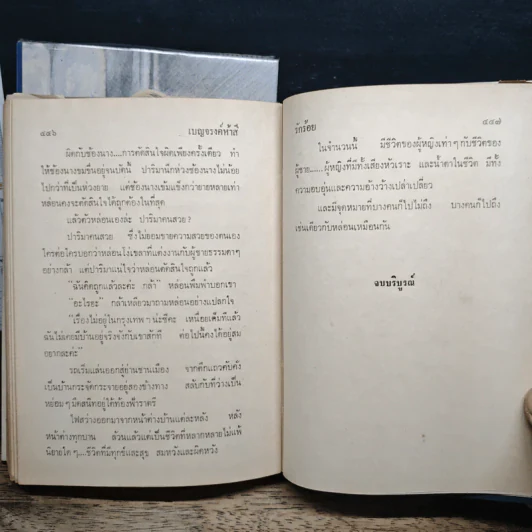 ๔๔๖ เบญจรงค์ห้าสี
ผิดกับช้องนาง....การตัดสินใจผิดเพียงครั้งเดียว ทำ
ให้ช้องนางขมขื่นอยู่จนบัดนี้ ปาริมานึกห่วงช้องนางไม่น้อย
ไปกว่าที่เป็นห่วงยาย แต่ช้องนางเข้มแข็งกว่ายายหลายเท่า
หล่อนคงจะตัดสินใจได้ถูกต้องในที่สุด
แล้วตัวหล่อนเองล่ะ ปาริมาคนสวย?
ปาริมาคนสวย ซึ่งไม่ยอมขายความสวยของตนเอง
ใครต่อใครบอกว่าหล่อนโง่เขลาที่แต่งงานกับผู้ชายธรรมดาๆ
อย่างกล้า แต่ปาริมาแน่ใจว่าหล่อนตัดสินใจถูกแล้ว
"ฉันคิดถูกแล้วละค่ะ กล้า" หล่อนพึมพำบอกเขา
"อะไรฮะ" กล้าเหลียวมาถามหล่อนอย่างแปลกใจ
"เรื่องไม่อยู่ในกรุงเทพฯ น่ะซีคะ เหนื่อยเต็มทีแล้ว
ฉันไม่เคยมีบ้านอยู่จริงจังกับเขาสักที ต่อไปนี้คงได้อยู่สม
อยากละค่ะ"
รถเริ่มแล่นออกสู่ย่านชานเมือง จากตึกแถวคับคั่ง
เป็นบ้านกระจัดกระจายอยู่สองข้างทาง สลับกับที่ว่างเป็น
หย่อมๆ มืดสนิทอยู่ใต้ท้องฟ้าราตรี
ไฟสว่างออกมาจากหน้าต่างบ้านแต่ละหลัง หลัง
หน้าต่างทุกบาน ล้วนแล้วแต่เป็นชีวิตที่หลากหลายไม่แพ้
นิยายใดๆ....ชีวิตที่มีทุกข์และสุข สมหวังและผิดหวัง
รักร้อย ๔๔๗
ในจำนวนนี้ มีชีวิตของผู้หญิงเท่าๆ กับชีวิตของ
ผู้ชาย......ผู้หญิงที่มีทั้งเสียงหัวเราะ และน้ำตาในชีวิต มีทั้ง
ความอบอุ่นและความอ้างว้างเปล่าเปลี่ยว
และมีจุดหมายที่บางคนก็ไปไม่ถึง บางคนก็ไปถึง
เช่นเดียวกับหล่อนเหมือนกัน
จบบริบูรณ์